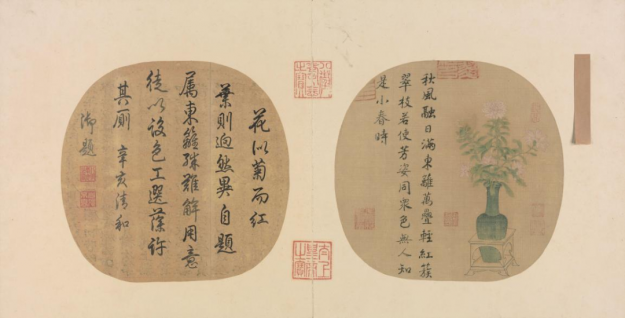 秋風融日滿東籬萬疊輕紅簇
翠枝若使芳姿同眾色無人知
是小春時
花似菊而紅
葉則迥然異自題
屬東籬殊難解用意
徒以設色工選藻許
其廁 辛亥清和
御題
八徵耄念之寶
太上皇帝之寶